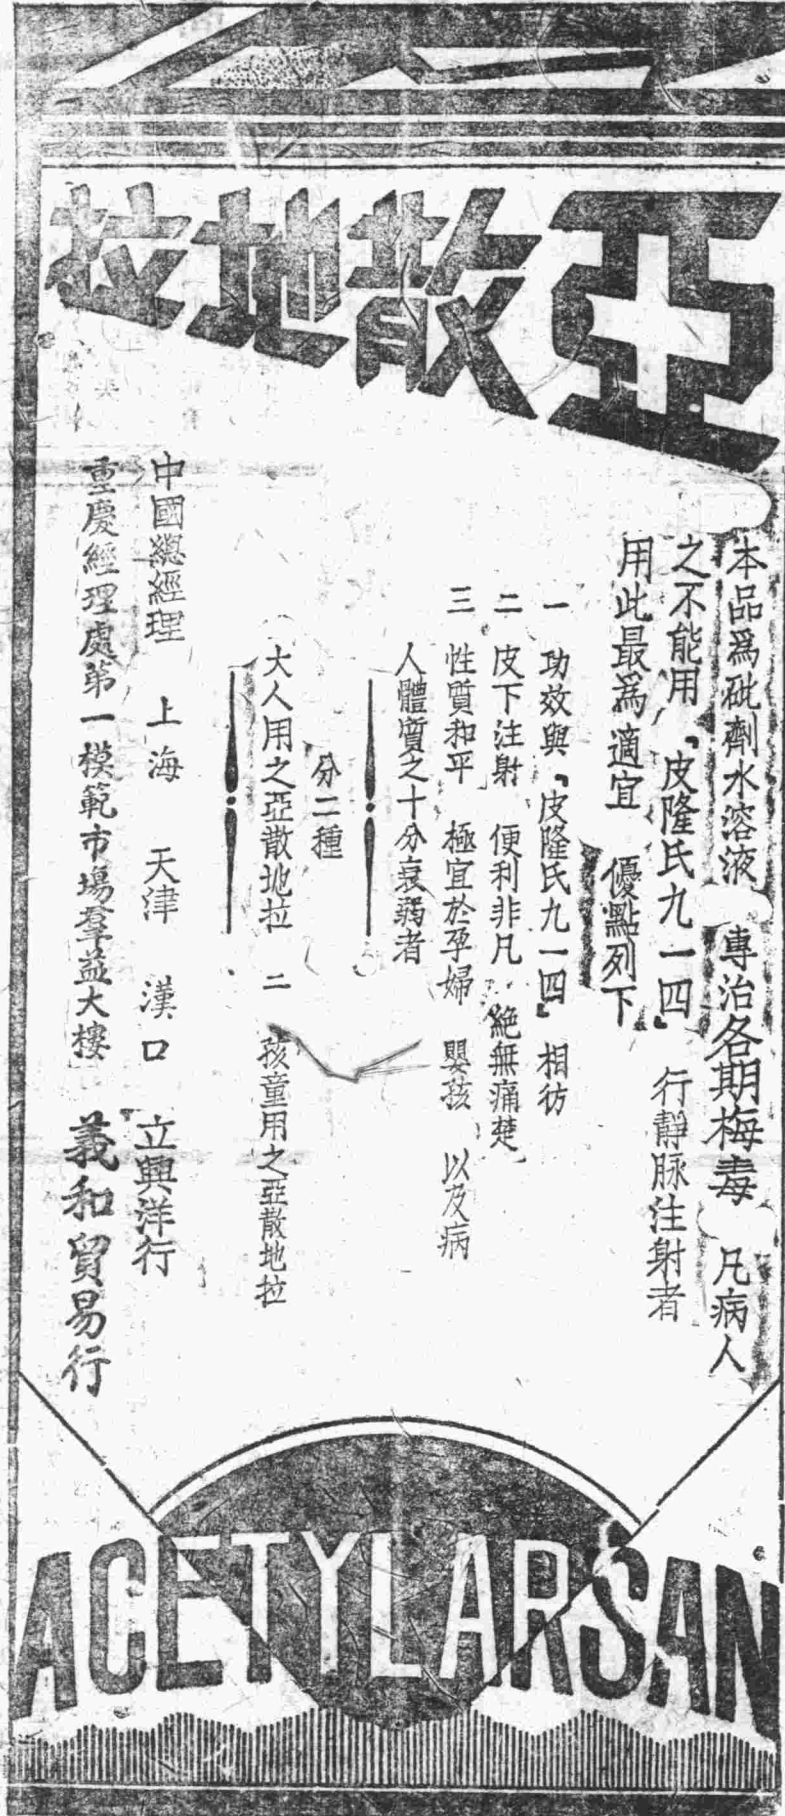 亞散地拉
本品爲砒劑水溶液 專治各期梅毒 凡病人
之不能用「皮隆氏九一四」行靜脉注射者
用此最爲適宜 優點列下
一 功效與「皮隆氏九一四」相彷
二 皮下注射 便利非凡 絕無痛楚
三 性質和平 極宜於孕婦 嬰孩 以及病
人體質之十分衰弱者
分二種
大人用之亞散地拉 二 孩童用之亞散地拉
中國總經理 上海 天津 漢口 立興洋行
重慶經理處第一模範市場羣益大樓 義和貿易行
ACETYLARSAN